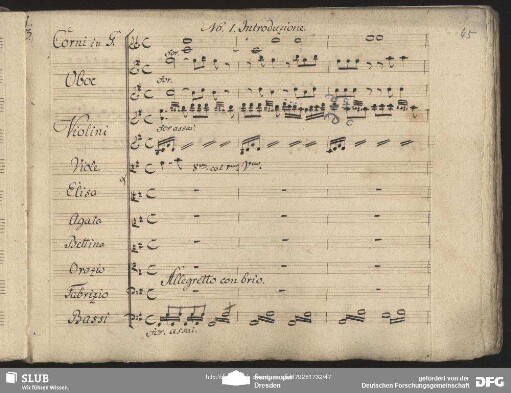 No. 1. Introduzione.
45
Corni in G.
for.
Oboe
for.
Violini
for assai.
Viole
col
Elisa
Agato
Bettina
Orazio
Allegretto con brio.
Fabrizio
Bassi
for. assai.
SLUB
Wir führen Wissen.
Dresden
gefördert von der
Deutschen Forschungsgemeinschaft
DFG